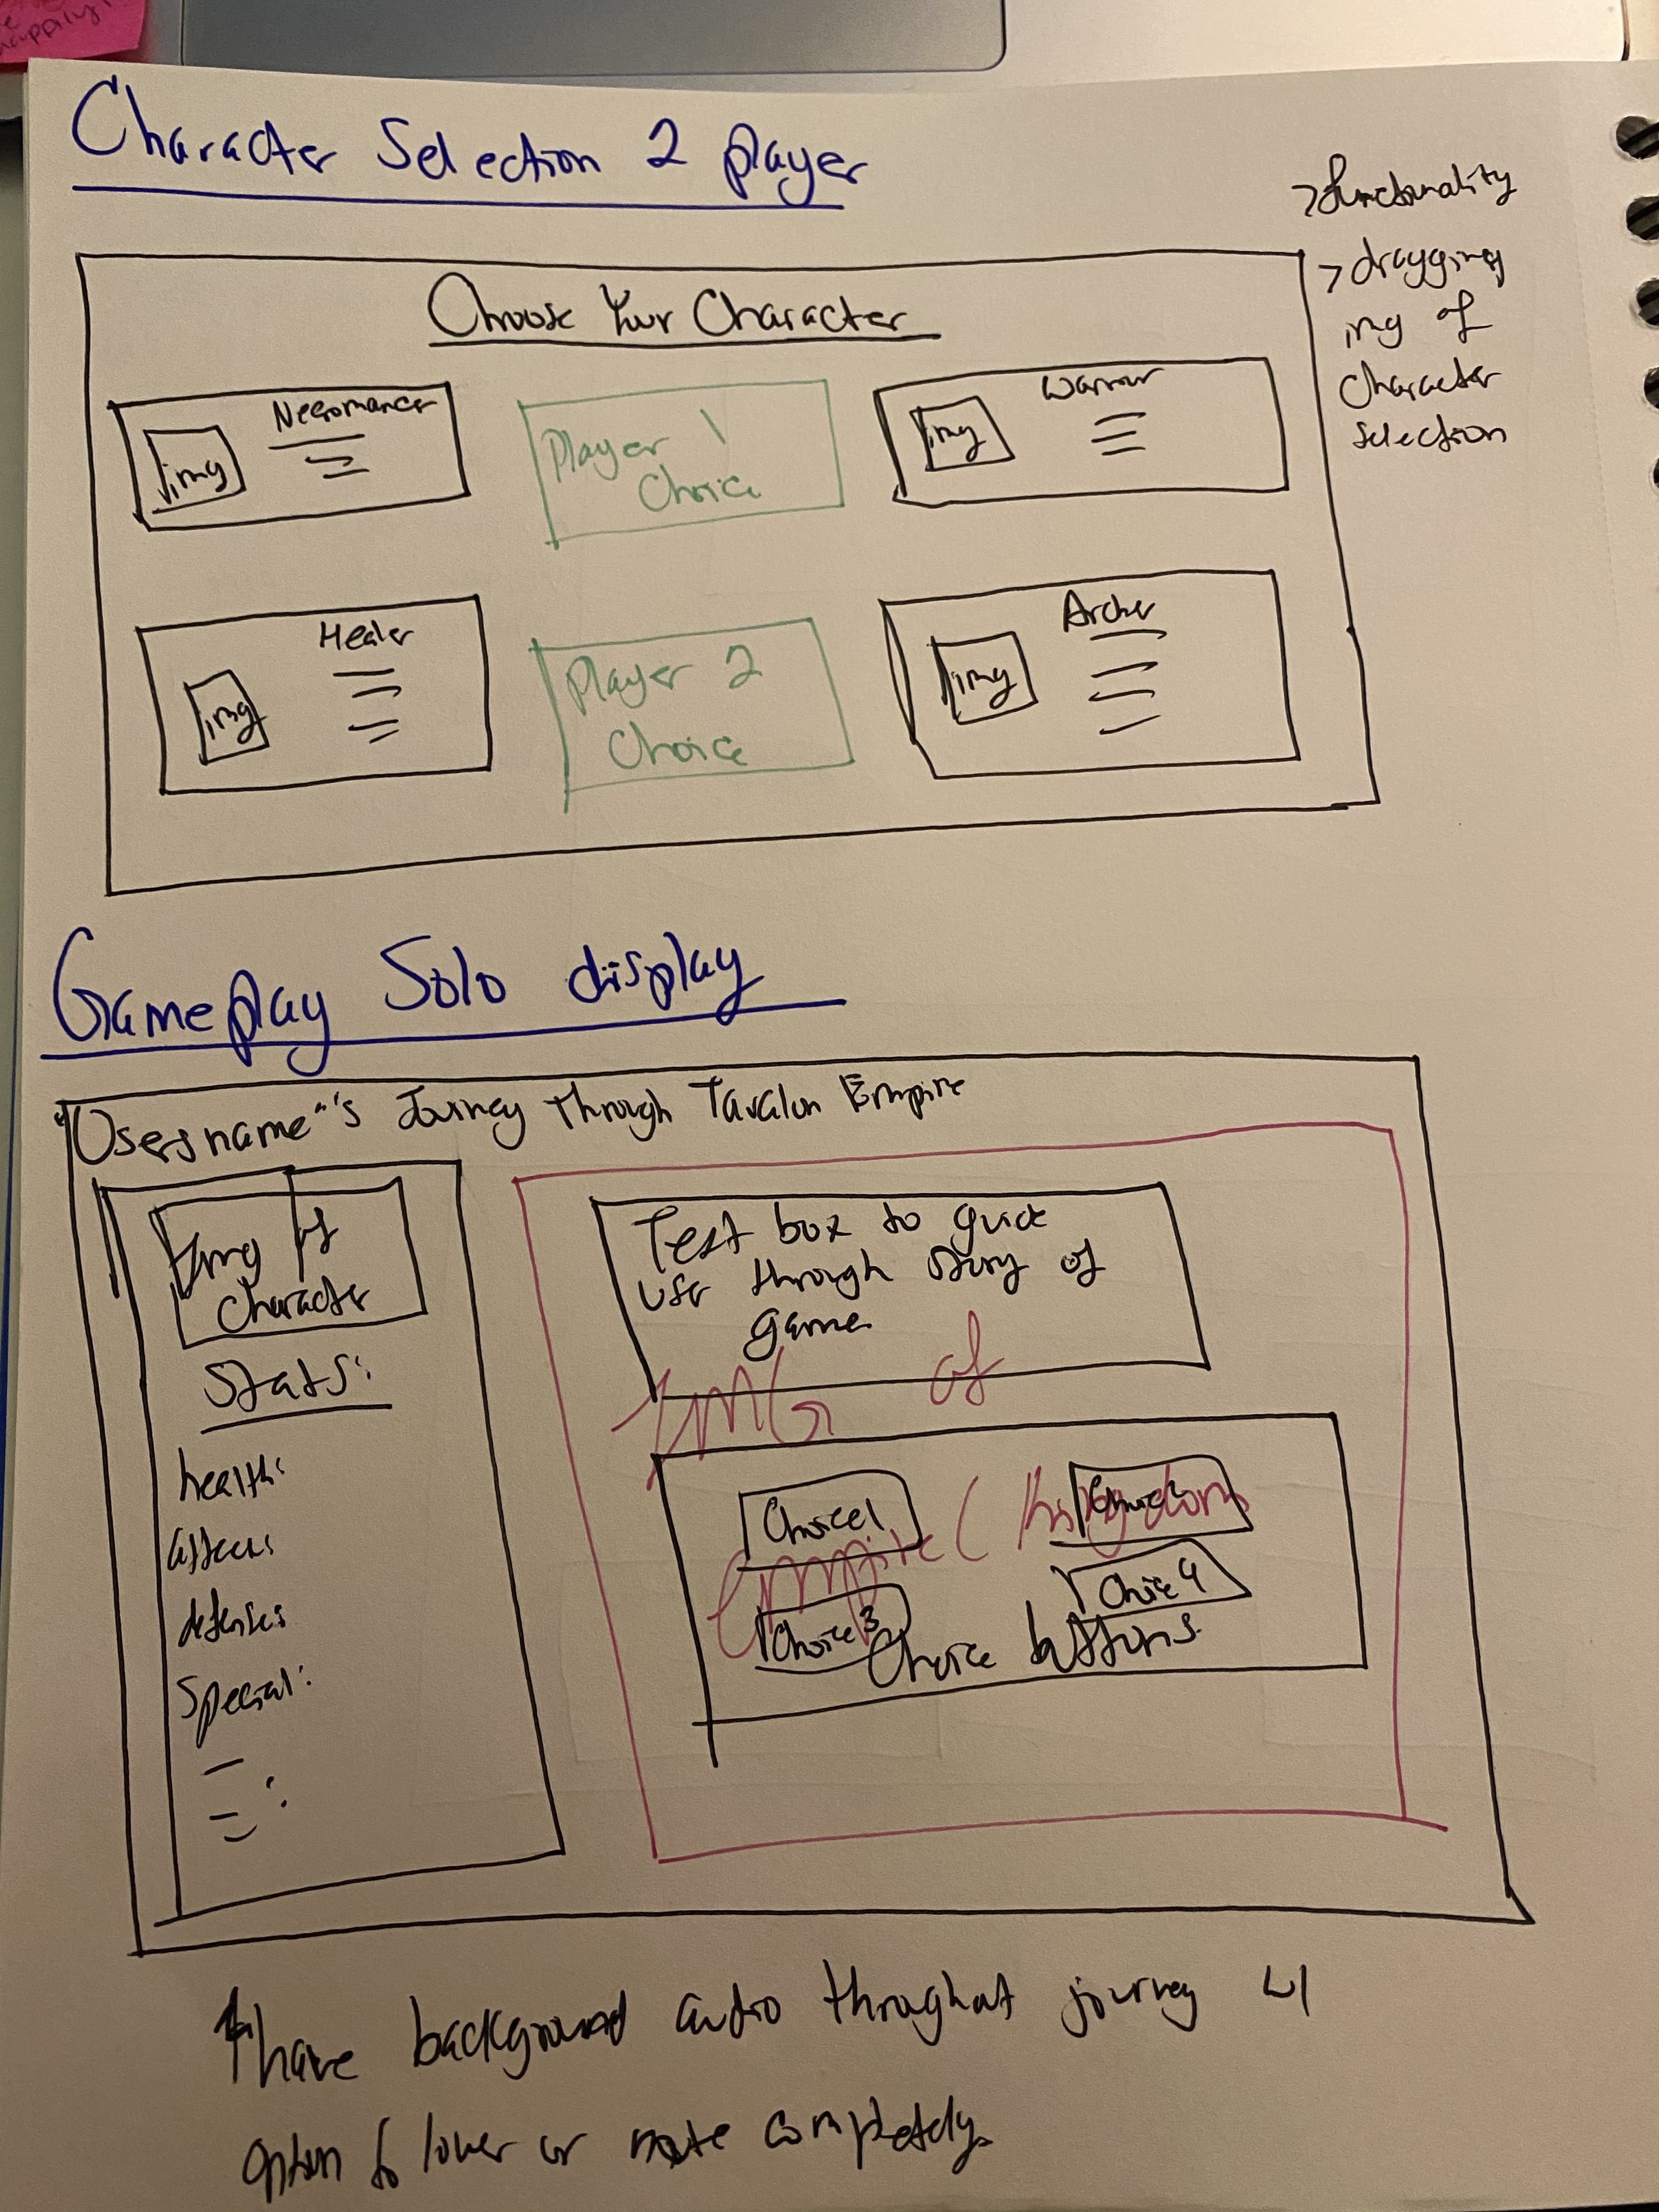 Character Selection 2 player
>functionality
>dragging
img of
character
selection
Choose Your Character
Necromancer
img
Player 1
Choice
Warrior
img
Healer
img
Player 2
Choice
Archer
img
Gameplay Solo display
"Usersname"'s Journey Through Tavalon Empire
Img of
Character
Stats:
health:
attack:
defense:
Special:
Text box to guide
user through story of
game
IMG of
Empire (kingdom
Choice 1
Choice 2
Choice 3
Choice 4
Choice buttons
have background audio throughout journey w/
option to lower or mute completely.